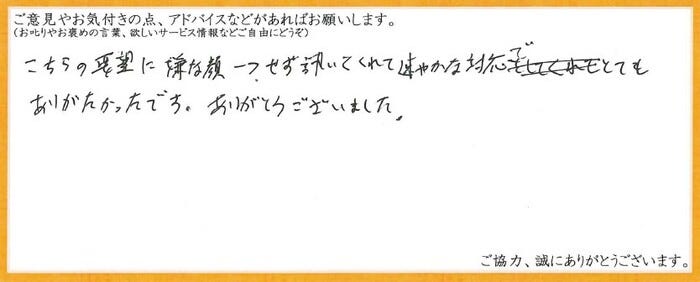 ご意見やお気付きの点、アドバイスなどがあればお願いします。
(お叱りやお褒めの言葉、欲しいサービス情報などご自由にどうぞ)
こちらの要望に嫌な顔一つせず訊いてくれて速やかな対応でとても
ありがたかったです。ありがとうございました。
ご協力、誠にありがとうございます。